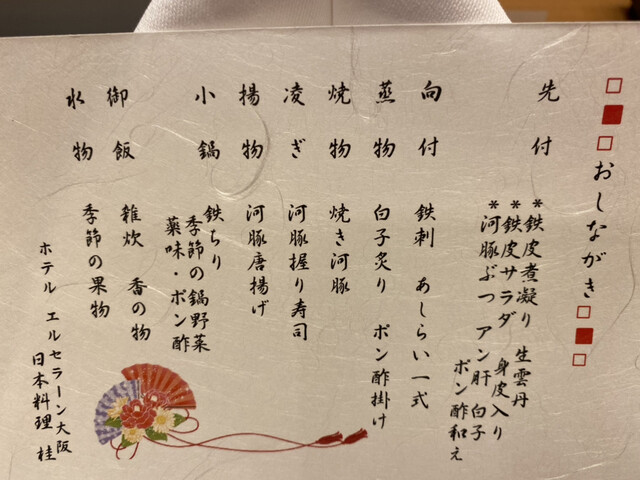 おしながき
先付
*鉄皮煮凝り 生雲丹
*鉄皮サラダ 身皮入り
*河豚ぶつ アン肝 白子
ポン酢和え
向付 鉄刺 あしらい一式
蒸物 白子炙り ポン酢掛け
焼物 焼き河豚
凌ぎ 河豚握り寿司
揚物 河豚唐揚げ
小鍋 鉄ちり
季節の鍋野菜
薬味・ポン酢
御飯 雑炊 香の物
水物 季節の果物
ホテル エルセラーン大阪
日本料理 桂